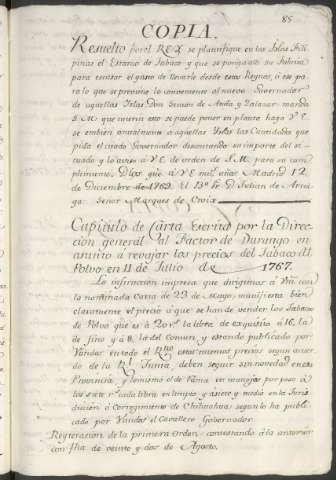 85
COPIA.
Resuelto por el REY se plantifique en las Islas Fili-
pinas el Estanco de Tabaco y que se ponga allí su fabrica
para evitar el gasto de llevarle desde estos Reynos, ó ese pa-
ra lo que se previene lo conveniente al nuevo Governador
de aquellas Islas Don Simon de Anda y Salazar manda
S.M. que interin esto se puede poner en planta haga V.E.
se embien anualmente a aquellas Yslas las Cantidades que
pida el citado Governador discontando su importe del si-
tuado y lo aviso a V.E. de orden de S.M. para su cum-
plimiento. Dios gue á V.E. ms. años Madrid 12
de Diciembre de 1769. El Bo. Fr. D. Julian de Arria-
ga. Señor Marques de Croix
Capitulo de Carta Escrita por la Direc-
ción general al Factor de Durango en
asunto á revajar los precios del Tabaco de
Polvo en 11 de Julio de 1767.
La instruccion impresa que dirigimos á Vm. con
la nominada Carta de 23 de Mayo, manifiesta bien
claramente el precio á que se han de vender los Tabacos
de Polvo que es á 20 rs. la libra de exquisito á 16. la
de fino y á 8. la del comun, y estando publicado por
Vandos en todo el Rno. estos mismos precios segun acuer-
do de la Rl. Junta, deben seguir sin novedad en esa
Provincia, y lo mismo el de Rama en manojos por peso á
los siete rs. cada libra en limpio y á siete y medio en la Juris-
dicion ó Corregimiento de Chihuahua, segun lo ha publi-
cado por Vandos el Cavallero Governador.
Reyteracion de la primera Orden contestando á la anterior
con fha. de veinte y dos de Agosto.